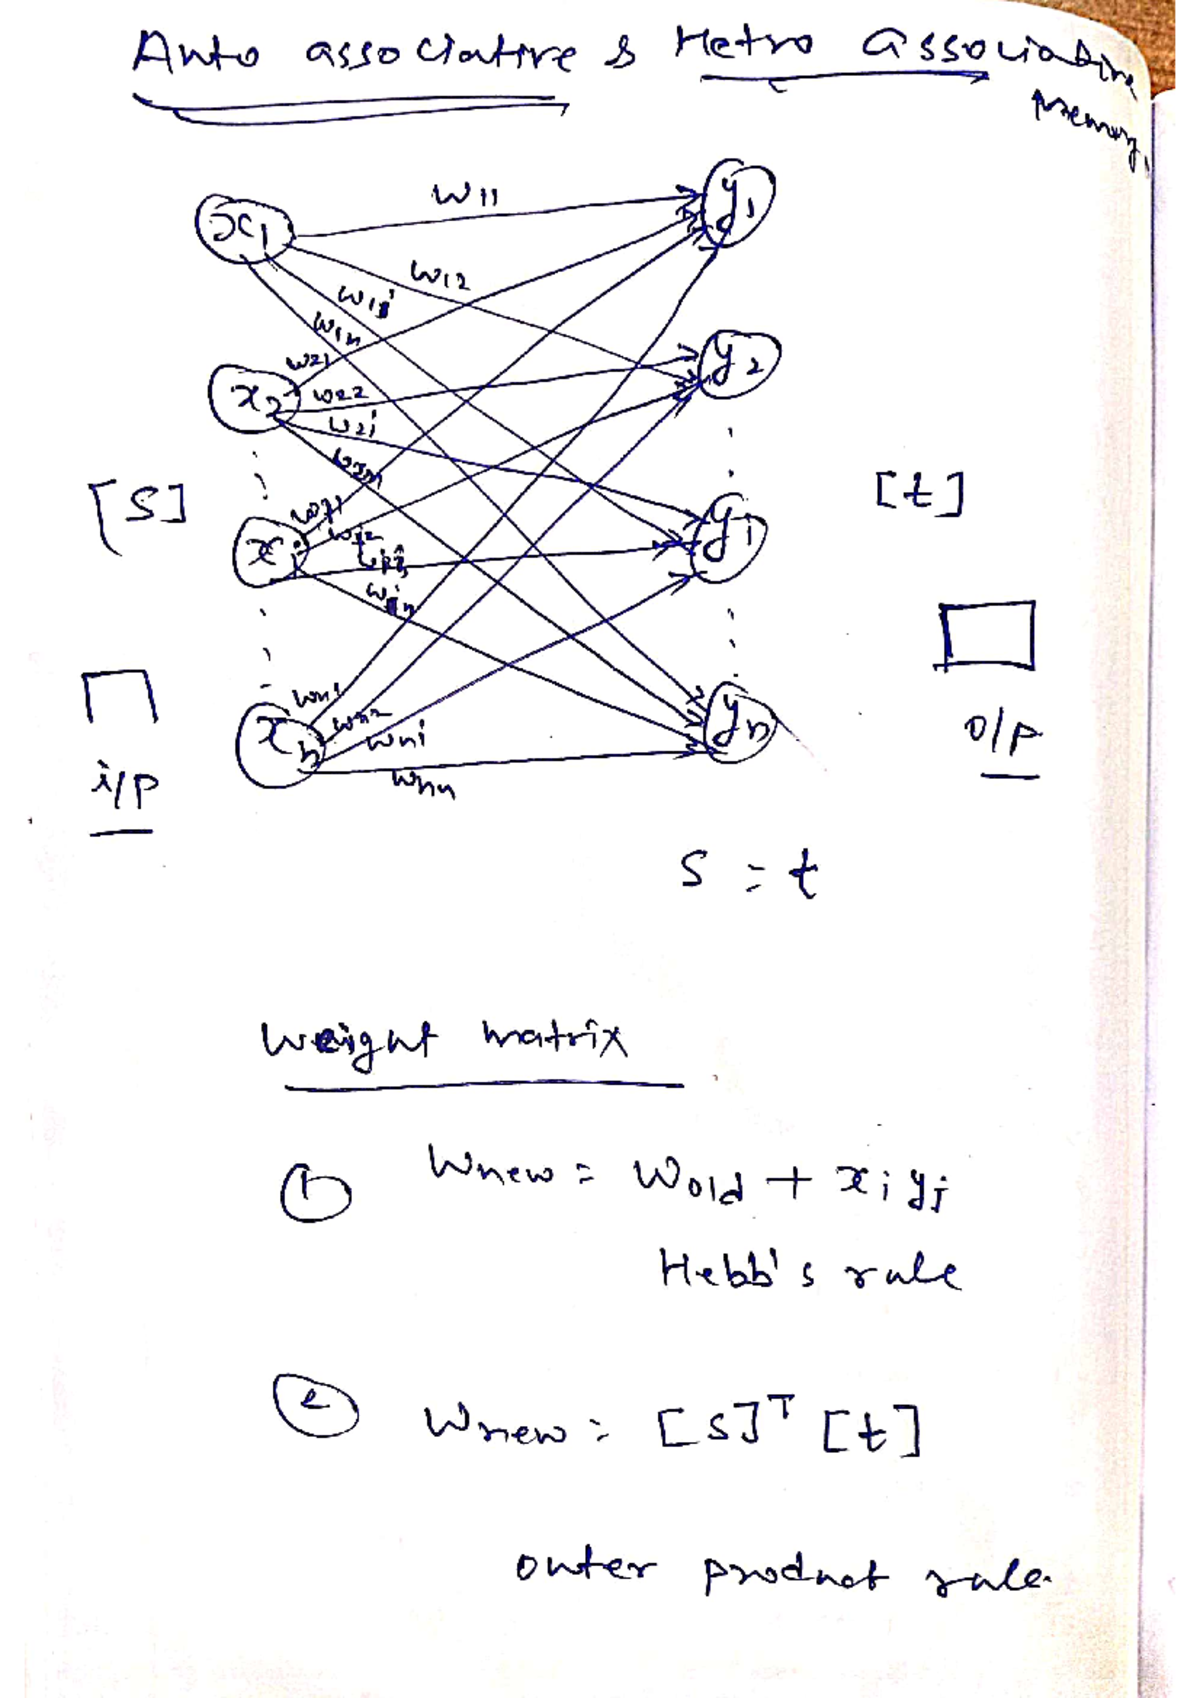 Auto associative & Hetro associative
memory.
x1 w11 y1
w12
w1j
w1n
w21
x2 w22 y2
w2j
[S] [t]
xi yj
wn1
xn wn2 yn
wni
wnn
i/p o/p
S = t
weight matrix
① Wnew = Wold + xi yj
Hebb's rule
② Wnew = [S]ᵀ [t]
outer product rule.